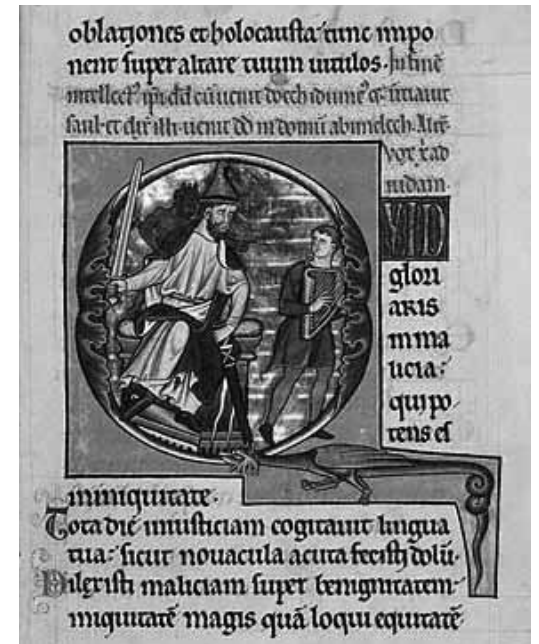 oblationes et holocausta: tunc inpo
nent super altare tuum uitulos. In finē
intellect᷒ ipi dd cū uenit doech idume᷒ & n̄tiauit
saul et dix̄ illi uenit dd in domū abimelech.
uox x̄ ad
iudam.
VID
glori
aris
in ma
licia:
qui po
tens es
in iniquitate.
Tota die iniusticiam cogitauit lingua
tua: sicut nouacula acuta fecisti dolū.
Dilexisti maliciam super benignitatem
iniquitatē magis quā loqui equitatē.